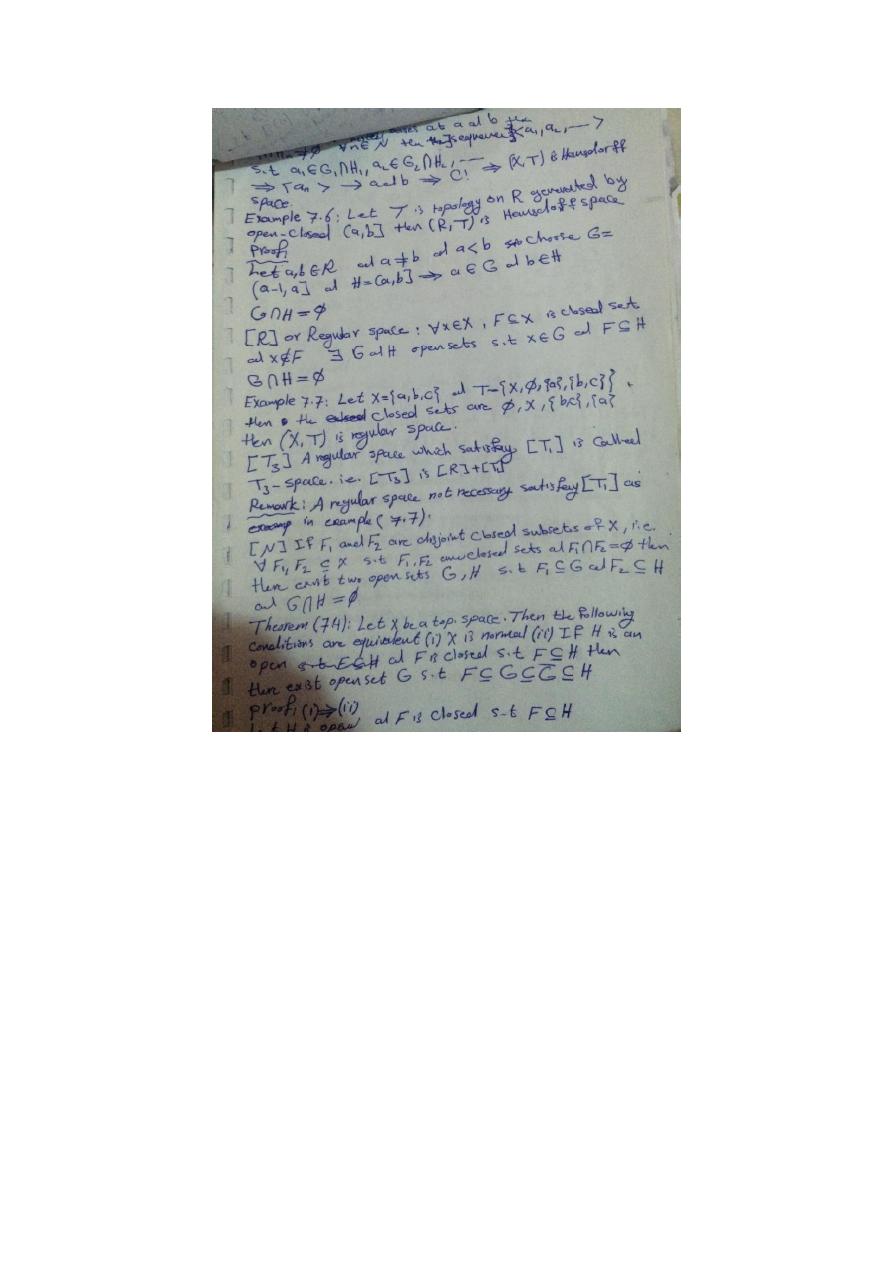 at a al b
∀n∈N then the ∃ sequence <a₁, a₂, ---- >
s.t a₁∈G₁∩H₁, a₂∈G₂∩H₂, ----
⇒ <aₙ> → a al b ⇒ C! ⇒ (X,T) is Hausdorff
space.
Example 7.6: Let T is topology on R generated by
open-closed (a,b] then (R,T) is Hausdoff space
Proof:
Let a,b∈R al a≠b al a<b so choose G=
(a-1,a] al H=(a,b] ⇒ a∈G al b∈H
G∩H=∅
[R] or Regular space: ∀x∈X, F⊆X is closed set
al x∉F ∃ G al H open sets s.t x∈G al F⊆H
G∩H=∅
Example 7.7: Let X={a,b,c} al T={X,∅,{a},{b,c}}.
then the closed sets are ∅, X, {b,c}, {a}
then (X,T) is regular space.
[T₃] A regular space which satisfay [T₁] is Called
T₃-space. i.e. [T₃] is [R]+[T₁]
Remark: A regular space not necessary satisfey [T₁] as
in example (7.7).
[N] If F₁ and F₂ are disjoint closed subsets of X, i.e.
∀ F₁, F₂ ⊆ X s.t F₁, F₂ are closed sets al F₁∩F₂=∅ then
there exist two open sets G, H s.t F₁⊆G al F₂⊆H
and G∩H=∅
Theorem (7.4): Let X be a top. space. Then the following
conditions are equivalent (i) X is normal (ii) If H is an
open s.t F⊆H al F is closed s.t F⊆H then
there exist open set G s.t F⊆G⊆G̅⊆H
proof: (i)⇒(ii)
Let H is open al F is closed s.t F⊆H